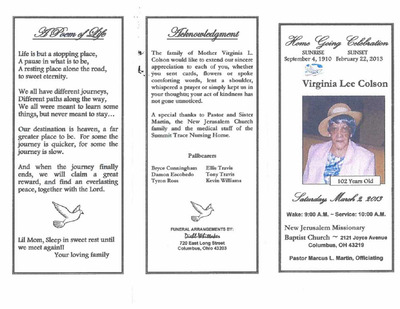 A Poem of Life
Life is but a stopping place,
A pause in what is to be,
A resting place along the road,
to sweet eternity.
We all have different journeys,
Different paths along the way,
We all were meant to learn some
things, but never meant to stay…
Our destination is heaven, a far
greater place to be. For some the
journey is quicker, for some the
journey is slow.
And when the journey finally
ends, we will claim a great
reward, and find an everlasting
peace, together with the Lord.
Lil Mom, Sleep in sweet rest until
we meet again!!
Your loving family
Acknowledgment
The family of Mother Virginia L.
Colson would like to extend our sincere
appreciation to each of you, whether
you sent cards, flowers or spoke
comforting words, lent a shoulder,
whispered a prayer or simply kept us in
your thoughts; your act of kindness has
not gone unnoticed.
A special thanks to Pastor and Sister
Martin, the New Jerusalem Church
family and the medical staff of the
Summit Trace Nursing Home.
Pallbearers
Boyce Cunningham Ellis Travis
Damon Escobedo Tony Travis
Tyron Ross Kevin Williams
FUNERAL ARRANGEMENTS BY:
Diehl-Whittaker
720 East Long Street
Columbus, Ohio 43203
Home Going Celebration
SUNRISE SUNSET
September 4, 1910 February 22, 2013
Virginia Lee Colson
102 Years Old
Saturday March 2, 2013
Wake: 9:00 A.M. ~ Service: 10:00 A.M.
New Jerusalem Missionary
Baptist Church ~ 2121 Joyce Avenue
Columbus, OH 43219
Pastor Marcus L. Martin, Officiating